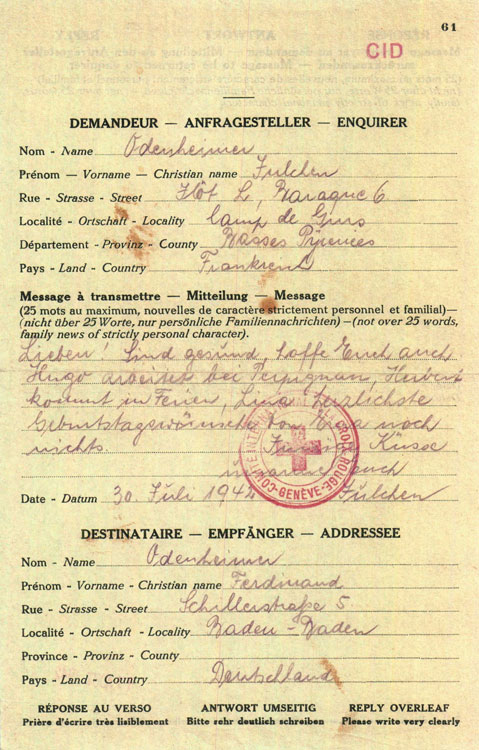 61
CID
DEMANDEUR — ANFRAGESTELLER — ENQUIRER
Nom - Name Odenheimer
Prénom — Vorname - Christian name Julchen
Rue - Strasse - Street Ilôt L, Baraque 6
Localité - Ortschaft - Locality Camp de Gurs
Département - Provinz - County Basses Pyrenées
Pays - Land - Country Frankreich
Message à transmettre — Mitteilung — Message
(25 mots au maximum, nouvelles de caractère strictement personnel et familial)—
(nicht über 25 Worte, nur persönliche Familiennachrichten)—(not over 25 words,
family news of strictly personal character).
Lieben! Sind gesund, hoffe Euch auch
Hugo arbeitet bei Perpignan, Herbert
kommt in Ferien, herzlichste
Geburtstagswünsche von noch
nichts. Küsse
Julchen
Date - Datum 30 Juli 1942
COMITÉ INTERNATIONAL DE LA CROIX-ROUGE-GENÈVE
DESTINATAIRE — EMPFÄNGER — ADDRESSEE
Nom - Name Odenheimer
Prénom - Vorname - Christian name Ferdinand
Rue - Strasse - Street Schillerstraße 5.
Localité - Ortschaft - Locality Baden-Baden
Province - Provinz - County
Pays - Land - Country Deutschland
RÉPONSE AU VERSO ANTWORT UMSEITIG REPLY OVERLEAF
Prière d'écrire très lisiblement Bitte sehr deutlich schreiben Please write very clearly